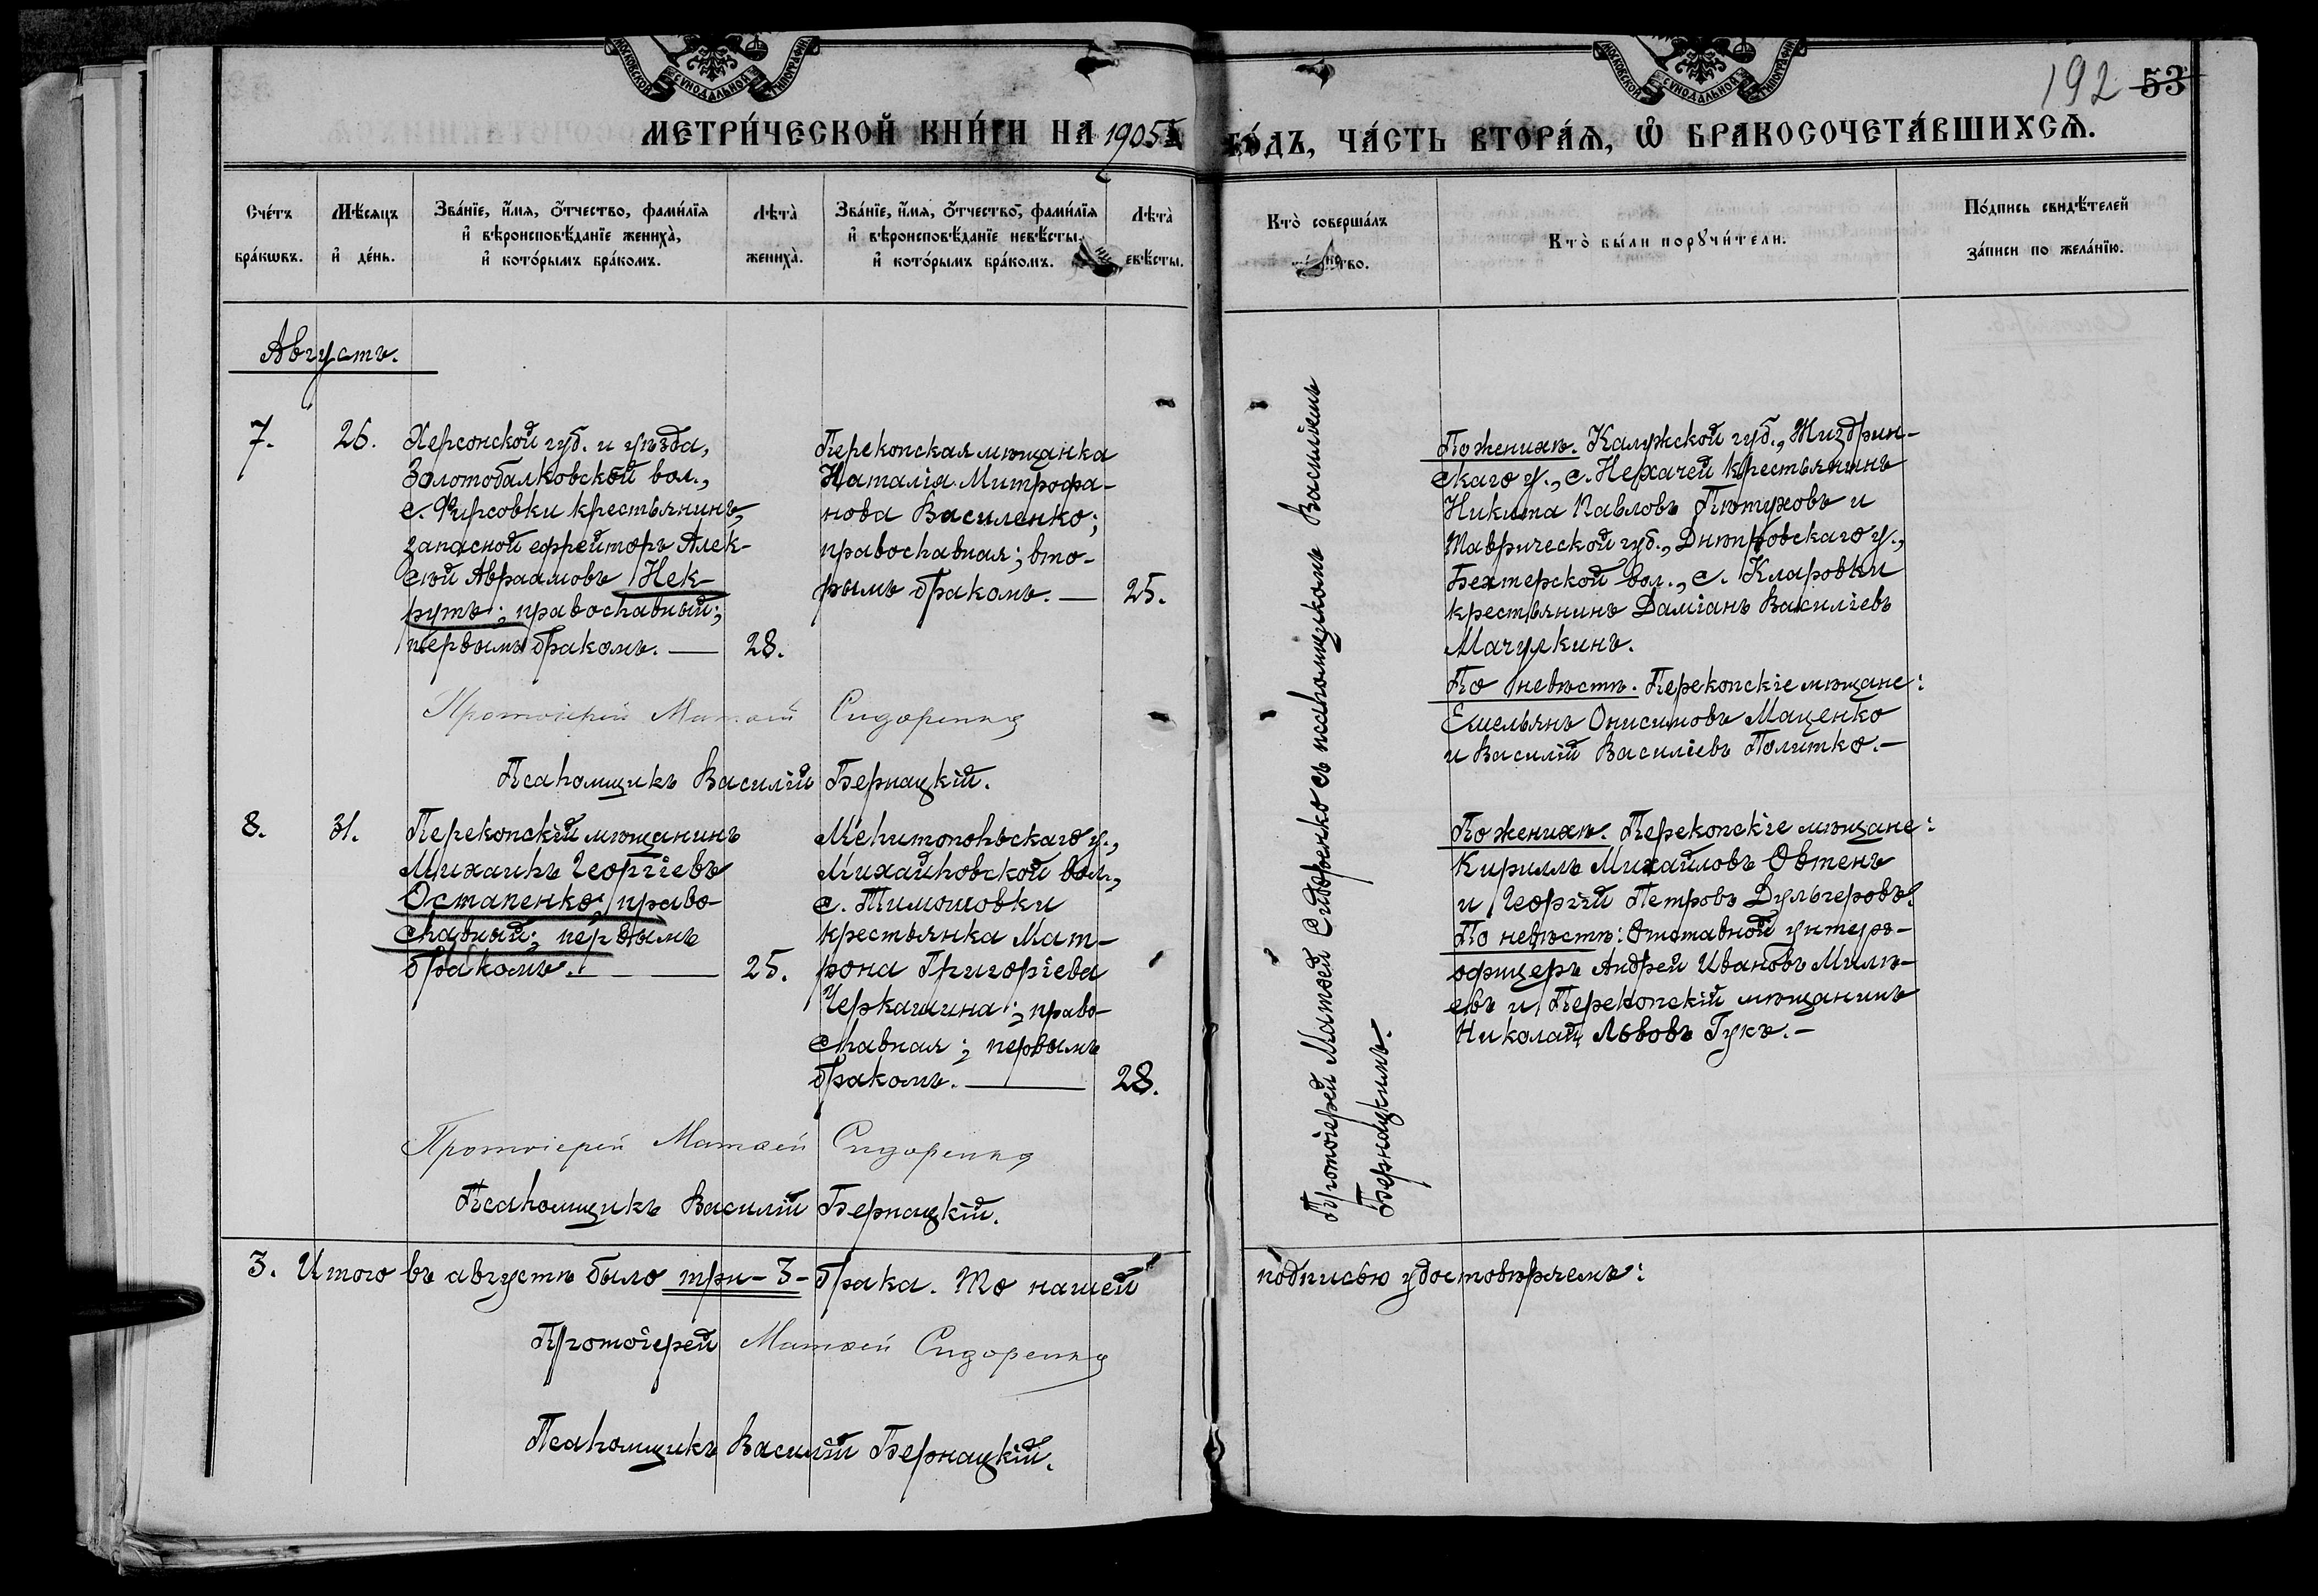 МОСКОВСКОЙ СѴНОДАЛЬНОЙ ТИПОГРАФІИ
МОСКОВСКОЙ СѴНОДАЛЬНОЙ ТИПОГРАФІИ
192 53
МЕТРИ́ЧЕСКОЙ КНИ́ГИ НА 1905 го́дъ, ЧА́СТЬ ВТОРА́Я, Ѽ БРАКОСОЧЕТА́ВШИХСѦ.
Сче́тъ
бра́кѡвъ.
Мѣ́сяцъ
и҆ де́нь.
Зва́нїе, и҆́мя, ѻ҆́тчество, фами́лїя
и҆ вѣроисповѣ́данїе жениха̀,
и҆ кото́рымъ бра́комъ.
Лѣта̀
жениха̀.
Зва́нїе, и҆́мя, ѻ҆́тчество, фами́лїя
и҆ вѣроисповѣ́данїе невѣ́сты,
и҆ кото́рымъ бра́комъ.
Лѣта̀
невѣ́сты.
Кто̀ соверша́лъ
тво.
Кто̀ бы́ли порꙋчи́тели.
По́дпись свидѣ́телей
за́писи по жела́нїю.
Августъ.
7.
26.
Херсонской губ. и уѣзда,
Золотобалковской вол.,
с. Фирсовки крестьянинъ,
запасной ефрейторъ Алек-
сѣй Авраамовъ Нек-
рутъ; православный;
первымъ бракомъ. —
28.
Перекопская мѣщанка
Наталія Митрофа-
нова Василенко;
православная; вто-
рымъ бракомъ. —
25.
Протоіерей Матѳей Сидоренко
Псаломщикъ Василій Бернацкій.
Протоіерей Матѳей Сидоренко съ псаломщикомъ Василіемъ
Бернацкимъ.
По женихѣ. Калужской губ., Жиздрин-
скаго у., с. Нехачей крестьянинъ
Никита Павловъ Пѣтуховъ и
Таврической губ., Днѣпровскаго у.,
Бехтерской вол., с. Кларовки
крестьянинъ Даміанъ Василіевъ
Мачулкинъ.
По невѣстѣ. Перекопскіе мѣщане:
Емельянъ Онисимовъ Маценко
и Василій Василіевъ Политко.—
8.
31.
Перекопскій мѣщанинъ
Михаилъ Георгіевъ
Остапенко; право-
славный; первымъ
бракомъ. —
25.
Мелитопольскаго у.,
Михайловской вол.,
с. Тимошовки
крестьянка Мат-
рона Григоріева
Черкашина; право-
славная; первымъ
бракомъ. —
28.
По женихѣ. Перекопскіе мѣщане:
Кириллъ Михайловъ Овтенъ
и Георгій Петровъ Дульгеровъ.
По невѣстѣ: Отставной унтеръ-
офицеръ Андрей Ивановъ Милѣ-
евъ и Перекопскій мѣщанинъ
Николай Львовъ Гукъ.—
Протоіерей Матѳей Сидоренко
Псаломщикъ Василій Бернацкій.
3. Итого въ августѣ было три-3-брака. То нашей подписью удостовѣряемъ:
Протоіерей Матѳей Сидоренко
Псаломщикъ Василій Бернацкій.